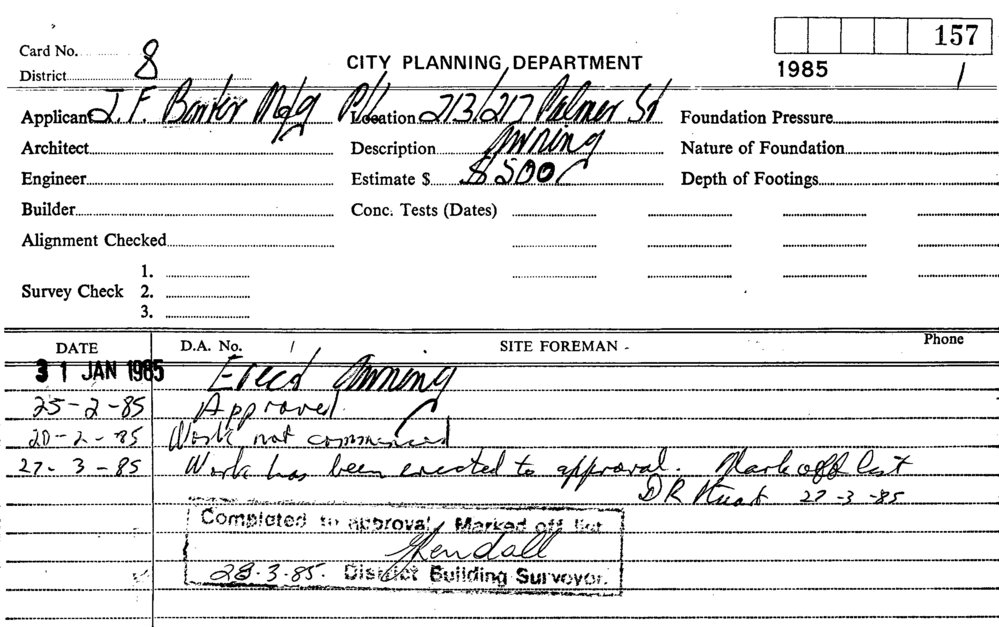 157
Card No. 8
CITY PLANNING DEPARTMENT
1985
District
Applicant J. F. Mfg P/L Location 213/217 Palmer St Foundation Pressure
Architect Description Awning Nature of Foundation
Engineer Estimate $ $500 Depth of Footings
Builder Conc. Tests (Dates)
Alignment Checked
1.
Survey Check 2.
3.
DATE D.A. No. SITE FOREMAN Phone
31 JAN 1985 Erect Awning
25-2-85 Approved.
-2-85 Work not commenced
27-3-85 Work has been erected to approval. Mark off list
D R 27-3-85
Completed to approval, Marked off list
Kendall
28.3.85. District Building Surveyor.